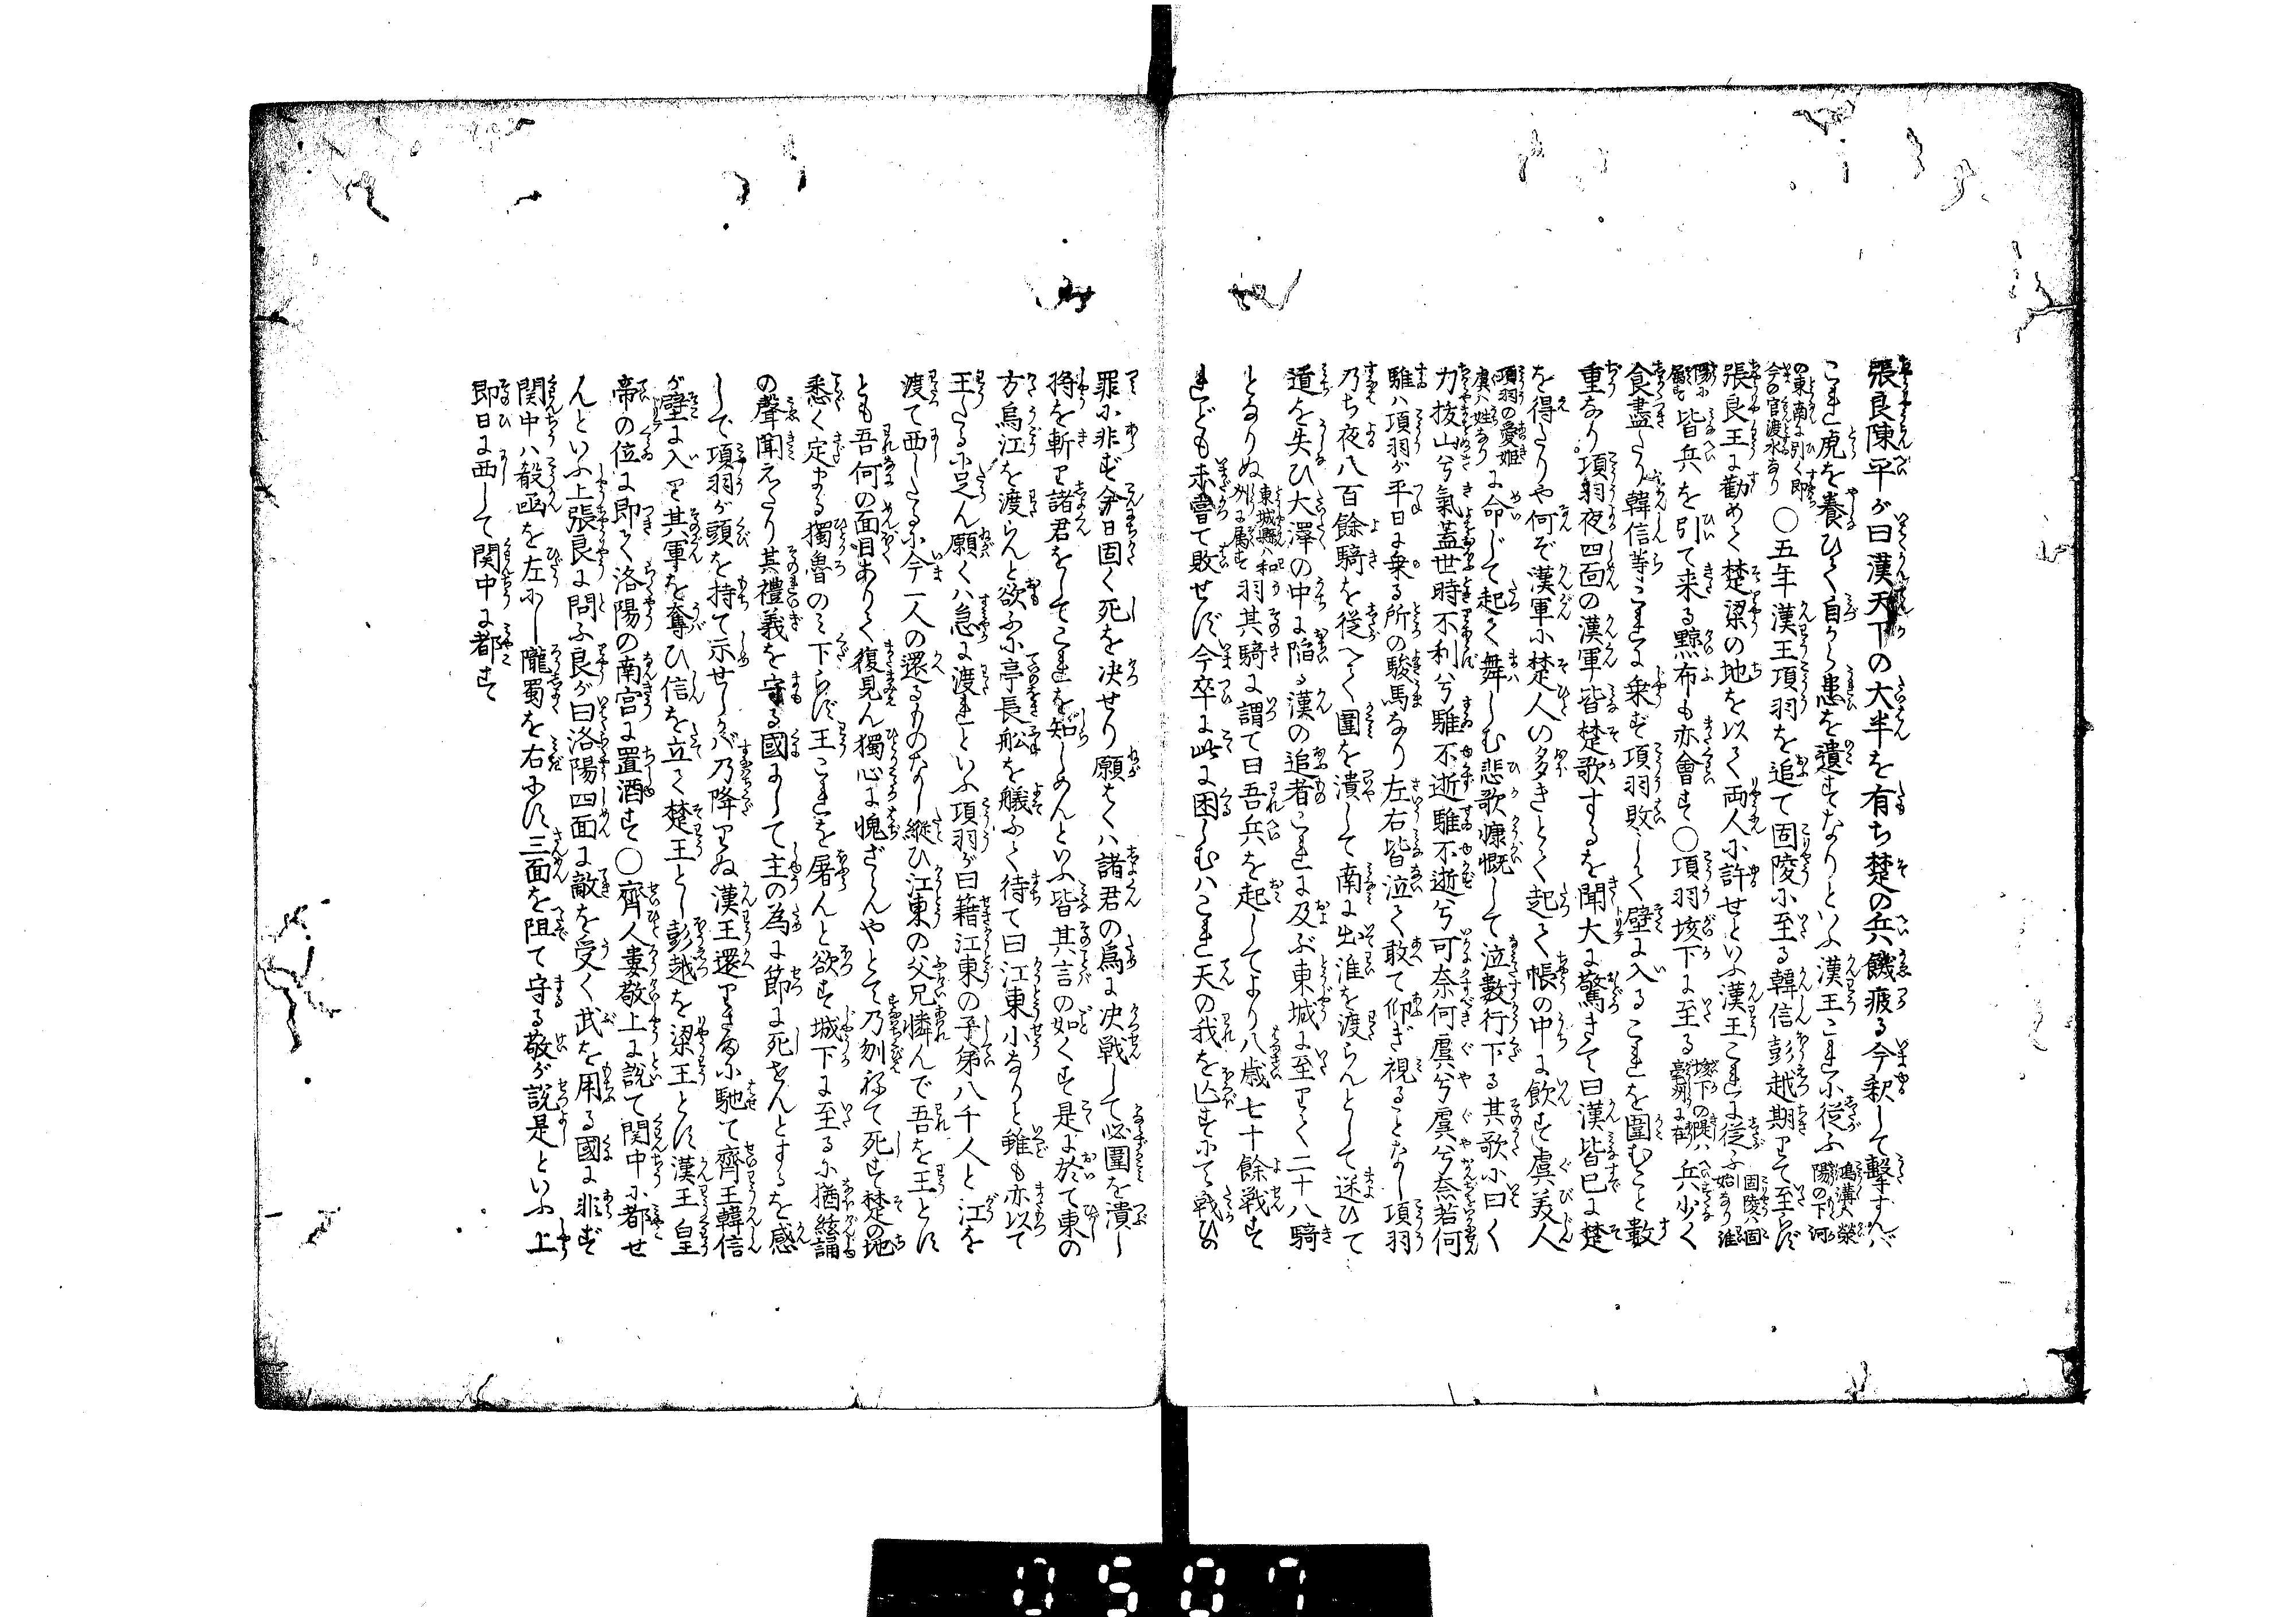 張良陳平が曰漢天下の大半を有ち楚の兵饑疲る今釈して撃ずんバ
これ虎を養ひて自から患を遺すなりといふ漢王これに従ふ鴻溝ハ滎陽の下河
の東南に引く即今の官渡水なり〇五年漢王項羽を追て固陵に至る韓信彭越期りて至らず
張良王に勧めて楚梁の地を以て両人に許せといふ漢王これに従ふ固陵ハ固始なり淮
陽に属す皆兵を引て来る黥布も亦會す〇項羽垓下に至る垓下の隄ハ亳州に在り兵少く
食盡たり韓信等これに乗ず項羽敗して壁に入るこれを圍むこと數
重なり項羽夜四面の漢軍皆楚歌するを聞大に驚きて曰漢皆已に楚
を得たりや何ぞ漢軍に楚人の多きとて起て帳の中に飲す虞美人
項羽の愛姫虞ハ姓なりに命じて起て舞しむ悲歌慷慨して泣數行下る其歌に曰く
力抜山兮氣蓋世時不利兮騅不逝騅不逝兮可奈何虞兮虞兮奈若何
騅ハ項羽が平日に乗る所の駿馬なり左右皆泣て敢て仰ぎ視ることなし項羽
乃ち夜八百餘騎を従へて圍を潰して南に出淮を渡らんとして迷ひて
道を失ひ大澤の中に陥る漢の追者これに及ぶ東城に至りて二十八騎
となりぬ東城縣ハ和州に属す羽其騎に謂て曰吾兵を起してより八歳七十餘戦す
れども未嘗て敗せず今卒に此に困しむハこれ天の我を亡すにて戦ひの
罪に非ず今日固く死を决せり願くハ諸君の為に决戦して必圍を潰し
将を斬り諸君をしてこれを知しめんといふ皆其言の如くす是に於て東の
方烏江を渡らんと欲ふに亭長舩を艤ふて待て曰江東小なりと雖も亦以て
王たるに足ん願くハ急に渡れといふ項羽が曰籍江東の子弟八千人と江を
渡て西したるに今一人の還るものなし縦ひ江東の父兄憐んで吾を王とす
とも吾何の面目ありて復見ん獨心に愧ざらんやとて乃刎ねて死す楚の地
悉く定まる獨魯のミ下らず王これを屠んと欲す城下に至るに猶絃誦
の聲聞えたり其禮義を守る國にして主の為に節に死せんとするを感
して項羽が頭を持て示せしかバ乃降りぬ漢王還り馳て齊王韓信
が壁に入り其軍を奪ひ信を立て楚王とし彭越を梁王とす漢王皇
帝の位に即て洛陽の南宮に置酒す〇齊人婁敬上に説て関中に都せ
んといふ上張良に問ふ良が曰洛陽四面に敵を受く武を用る國に非ず
関中ハ殽函を左にし隴蜀を右にす三面を阻て守る敬が説是といふ上
即日に西して関中に都す
0507